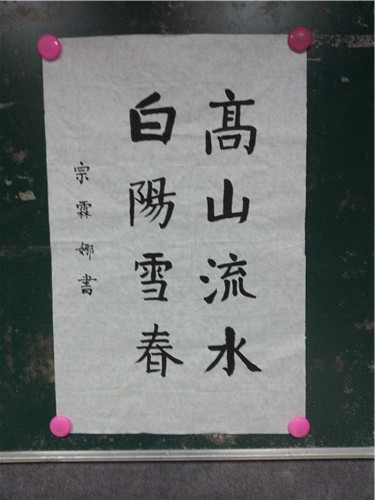 髙山流水
白陽雪春
宗霖娜書